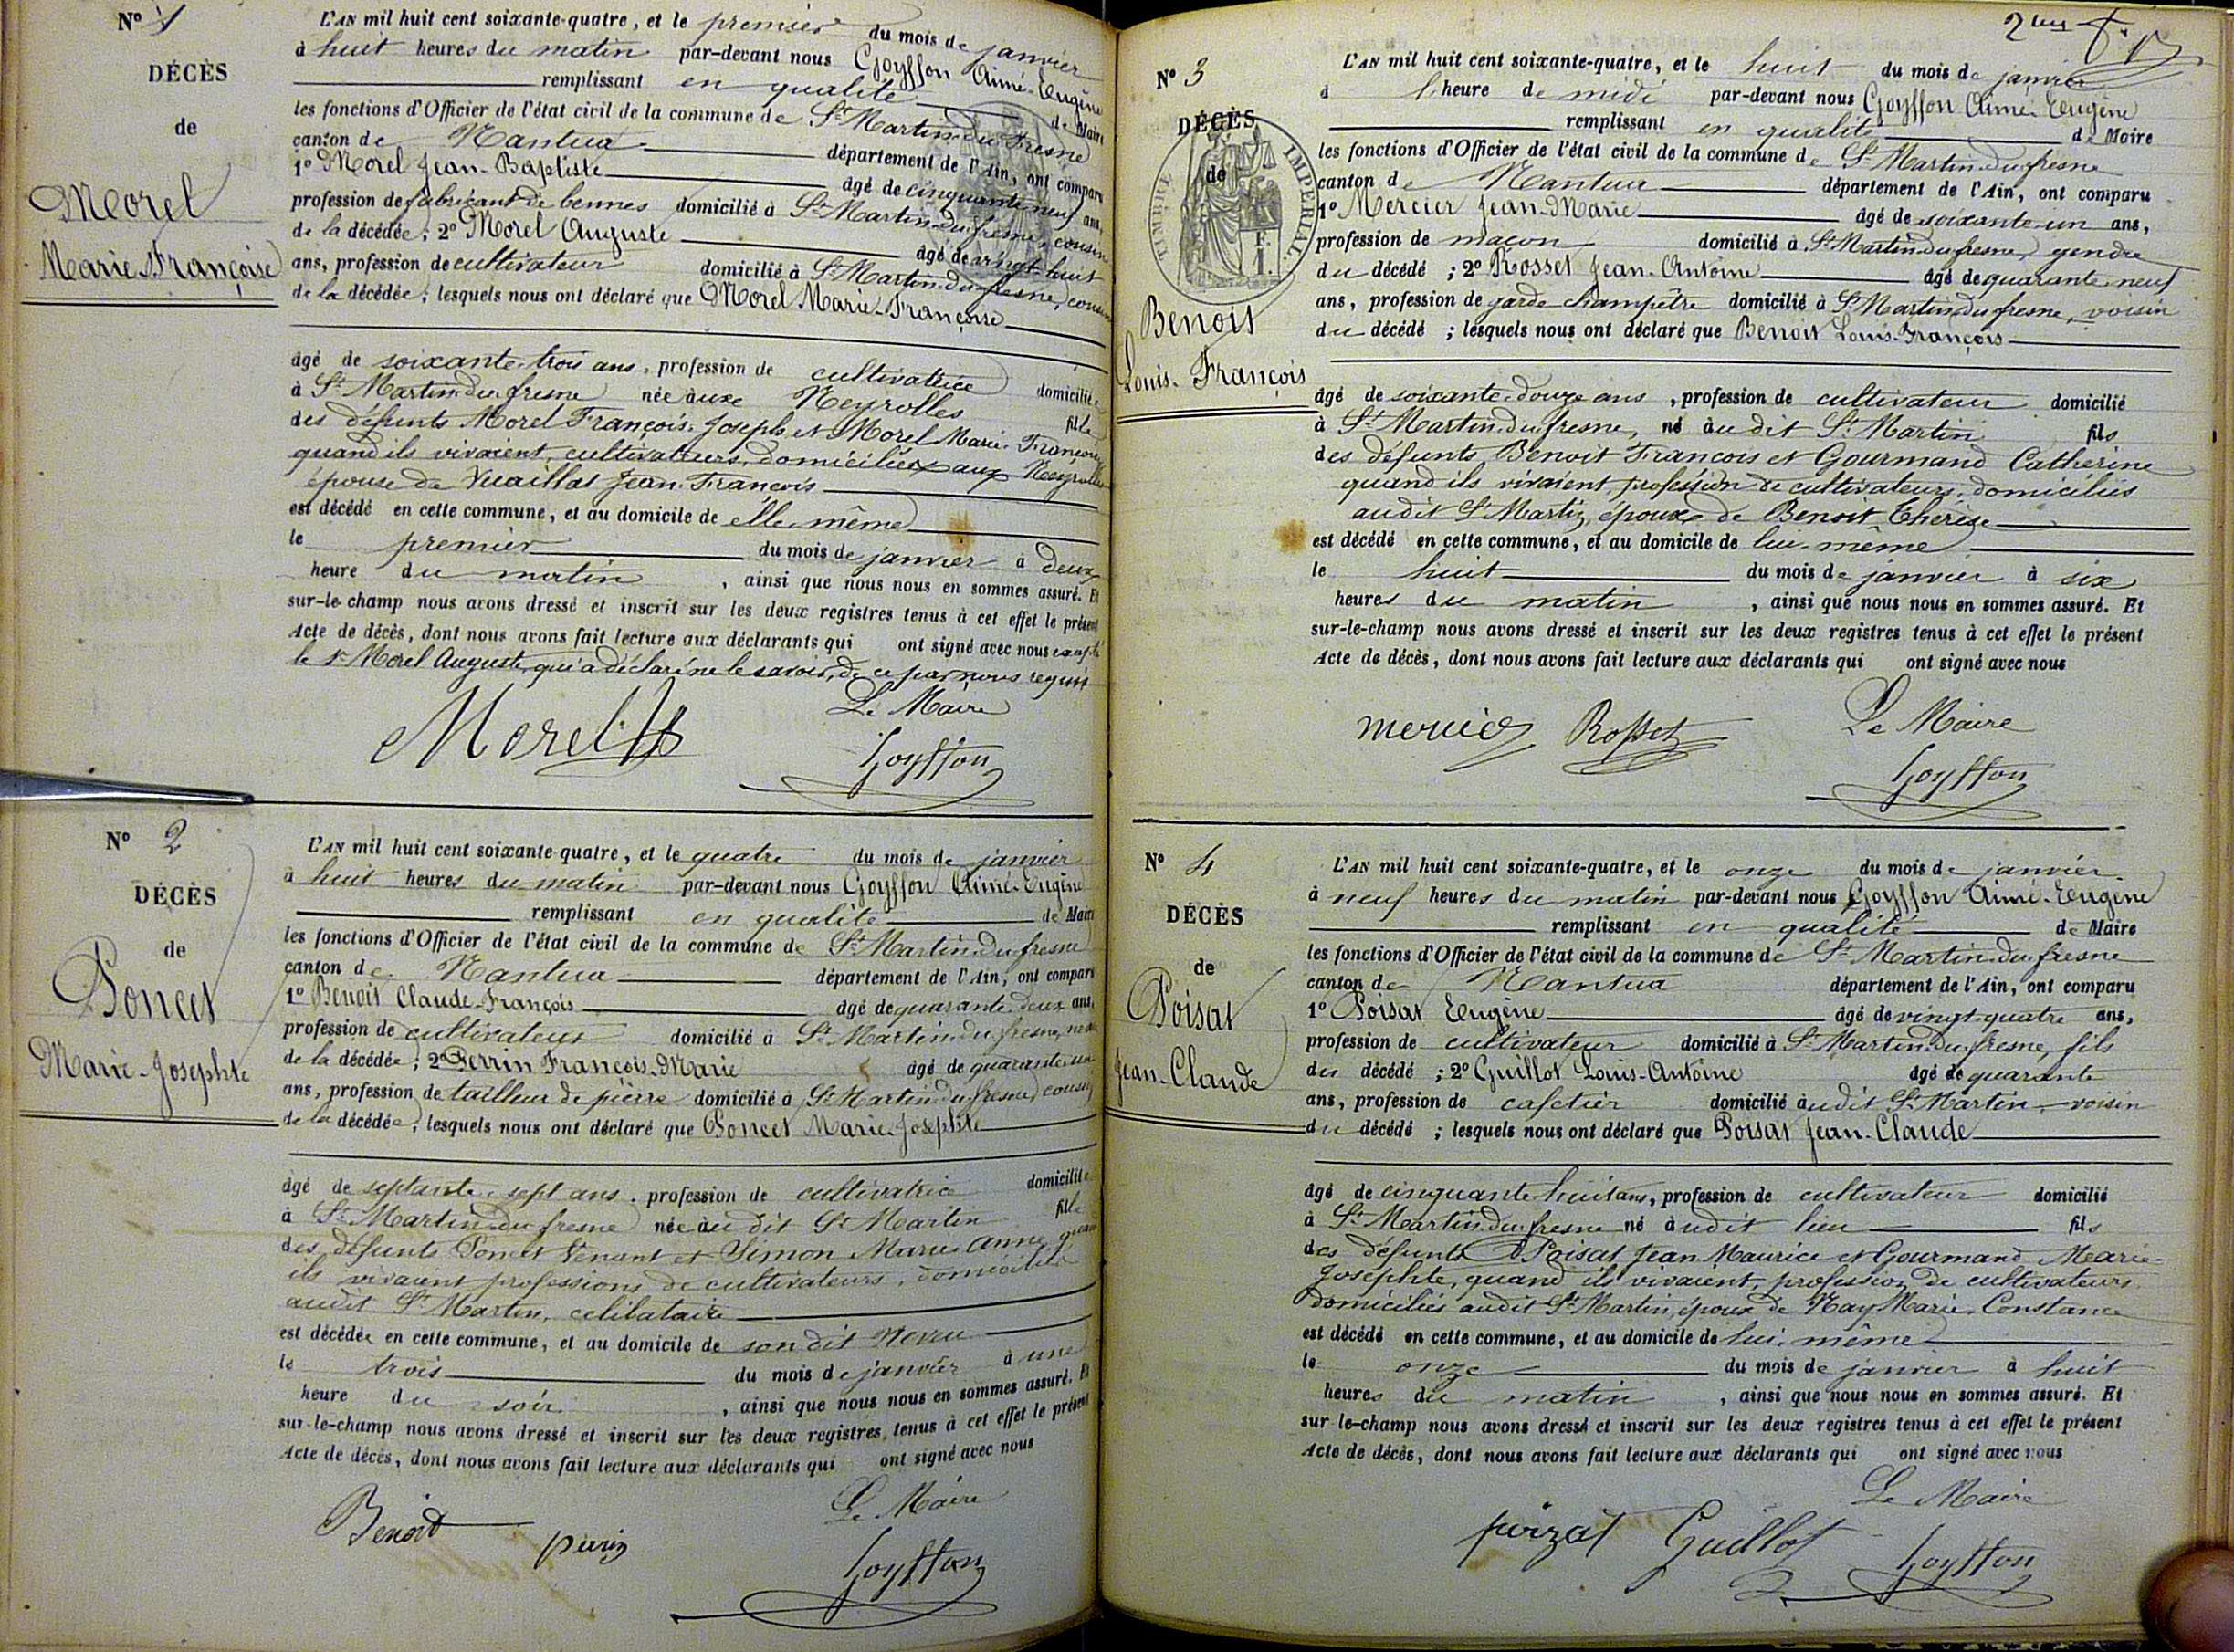 Nº 1
DÉCÈS
de
Morel
Marie Françoise
L'AN mil huit cent soixante-quatre, et le premier du mois de janvier
à huit heures du matin par-devant nous Goyffon Aimé-Eugène
remplissant en qualité de Maire
les fonctions d'Officier de l'état civil de la commune de St Martin-du-Fresne
canton de Nantua département de l'Ain, ont comparu
1º Morel Jean-Baptiste âgé de cinquante neuf ans,
profession de fabricant de bennes domicilié à St Martin-du-fresne, cousin
de la décédée; 2º Morel Auguste âgé de vingt huit
ans, profession de cultivateur domicilié à St Martin-du-fresne, cousin
de la décédée; lesquels nous ont déclaré que Morel Marie-Françoise
âgé de soixante-trois ans, profession de cultivatrice domiciliée
à St Martin-du-fresne née aux Neyrolles fille
des défunts Morel François-Joseph et Morel Marie-Françoise
quand ils vivaient, cultivateurs, domiciliés aux Neyrolles
épouse de Vuaillat Jean-François
est décédé en cette commune, et au domicile de elle-même
le premier du mois de janvier à deux
heure du matin, ainsi que nous nous en sommes assuré. Et
sur-le-champ nous avons dressé et inscrit sur les deux registres tenus à cet effet le présent
Acte de décès, dont nous avons fait lecture aux déclarants qui ont signé avec nous excepté
le sr Morel Auguste, qui a déclaré ne le savoir, de ce par nous requis
Le Maire
Morel JB
Goyffon
Nº 2
DÉCÈS
de
Poncet
Marie-Josephte
L'AN mil huit cent soixante-quatre, et le quatre du mois de janvier
à huit heures du matin par-devant nous Goyffon Aimé-Eugène
remplissant en qualité de Maire
les fonctions d'Officier de l'état civil de la commune de St Martin-du-fresne
canton de Nantua département de l'Ain, ont comparu
1º Benoit Claude-François âgé de quarante deux ans,
profession de cultivateur domicilié à St Martin-du-fresne, neveu
de la décédée; 2º Perrin François-Marie âgé de quarante un
ans, profession de tailleur de pierre domicilié à St Martin-du-fresne, cousin
de la décédée; lesquels nous ont déclaré que Poncet Marie-Josephte
âgé de septante-sept ans, profession de cultivatrice domiciliée
à St Martin-du-fresne née audit St Martin fille
des défunts Poncet Venant et Simon Marie Anne quand
ils vivaient professions de cultivateurs, domiciliés
audit St Martin, célibataire
est décédée en cette commune, et au domicile de son dit Neveu
le trois du mois de janvier à une
heure du soir, ainsi que nous nous en sommes assuré. Et
sur-le-champ nous avons dressé et inscrit sur les deux registres, tenus à cet effet le présent
Acte de décès, dont nous avons fait lecture aux déclarants qui ont signé avec nous
Le Maire
Benoit perin
Goyffon
Nº 3
DÉCÈS
de
TIMBRE IMPERIAL
Benoit
Louis-François
L'AN mil huit cent soixante-quatre, et le huit du mois de janvier
à l'heure de midi par-devant nous Goyffon Aimé-Eugène
remplissant en qualité de Maire
les fonctions d'Officier de l'état civil de la commune de St Martin-du-fresne
canton de Nantua département de l'Ain, ont comparu
1º Mercier Jean-Marie âgé de soixante-un ans,
profession de maçon domicilié à St Martin-du-fresne, gendre
du décédé; 2º Rosset Jean-Antoine âgé de quarante-neuf
ans, profession de garde champêtre domicilié à St Martin-du-fresne, voisin
du décédé; lesquels nous ont déclaré que Benoit Louis-François
âgé de soixante-douze ans, profession de cultivateur domicilié
à St Martin-du-fresne, né audit St Martin fils
des défunts Benoit François et Gourmand Catherine
quand ils vivaient, profession de cultivateurs, domiciliés
audit St Martin, époux de Benoit Thérèse
est décédé en cette commune, et au domicile de lui-même
le huit du mois de janvier à six
heures du matin, ainsi que nous nous en sommes assuré. Et
sur-le-champ nous avons dressé et inscrit sur les deux registres tenus à cet effet le présent
Acte de décès, dont nous avons fait lecture aux déclarants qui ont signé avec nous
Le Maire
mercier Rosset
Goyffon
Nº 4
DÉCÈS
de
Poisat
Jean-Claude
L'AN mil huit cent soixante-quatre, et le onze du mois de janvier
à neuf heures du matin par-devant nous Goyffon Aimé-Eugène
remplissant en qualité de Maire
les fonctions d'Officier de l'état civil de la commune de St Martin-du-fresne
canton de Nantua département de l'Ain, ont comparu
1º Poisat Eugène âgé de vingt-quatre ans,
profession de cultivateur domicilié à St Martin-du-fresne, fils
du décédé; 2º Guillot Louis-Antoine âgé de quarante
ans, profession de cafetier domicilié audit St Martin, voisin
du décédé; lesquels nous ont déclaré que Poisat Jean-Claude
âgé de cinquante huit ans, profession de cultivateur domicilié
à St Martin-du-fresne né audit lieu fils
des défunts Poisat Jean Maurice et Gourmand Marie-
Josephte, quand ils vivaient, profession de cultivateurs
domiciliés audit St Martin, époux de Nay Marie-Constance
est décédé en cette commune, et au domicile de lui-même
le onze du mois de janvier à huit
heures du matin, ainsi que nous nous en sommes assuré. Et
sur-le-champ nous avons dressé et inscrit sur les deux registres tenus à cet effet le présent
Acte de décès, dont nous avons fait lecture aux déclarants qui ont signé avec nous
Le Maire
poizat Guillot
Goyffon